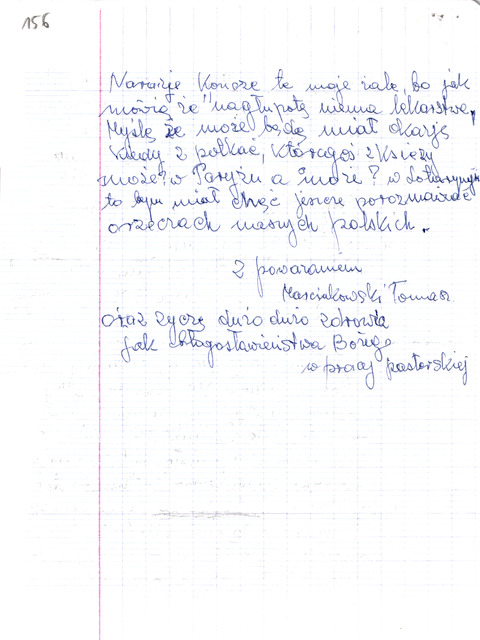 156
Narazie Kończę te moje żale, bo jak
mówią że "na głupotę niema lekarstwa,
Myślę że może będę miał okazję
kiedy z polkać, któregoś z Księży
może? w Paryżu a może? w
to bym miał chęć jescze porozmawiać
orzeczach naszych polskich.
Z poważaniem
Marciakowski Tomasz
oraz zyczę dużo dużo zdrowia
jak błogosławieństwa Bożego
w pracy pastorskiej